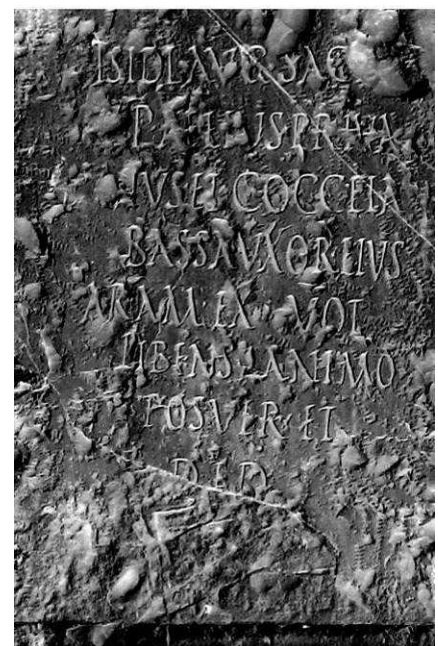 ISIDI AVG SAC
IVS EI COCCEIA
BASSA VXOR EIVS
ARAM EX VOT
LIBENS ANIMO
POSVER ET
DED